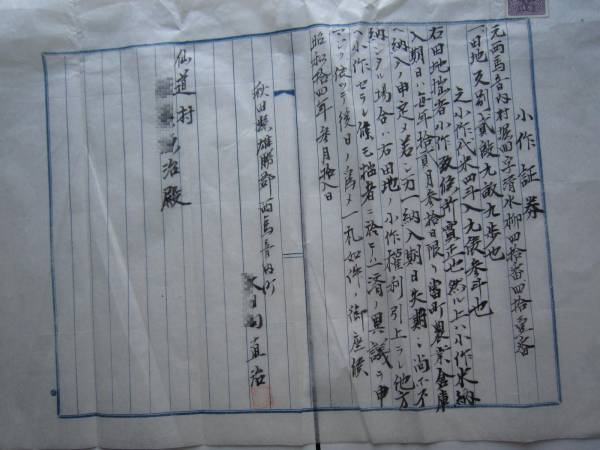 小作証券
元西馬音内村堀回字清水柳四拾番四拾壱番
一田地反別貳反九畝九歩也
之小作代米四斗入九俵参斗也
右田地拙者小作致候所實正也然ル上ハ小作米納
入期日ハ毎年拾貳月参拾日限リ当町農業倉庫
ヘ納入ノ申定メ若シ万一納入期日失期シ尚ホ不
納シタル場合ハ右田地ノ小作權利引上ラレ他方
ヘ小作セラレ候モ拙者ニ於テハ一済ノ異議ヲ申
依ツテ後日ノ為メ一札如件ノ御座候
昭和拾四年 月拾八日
秋田縣雄勝郡西馬音内町
直治
仙道村
治殿